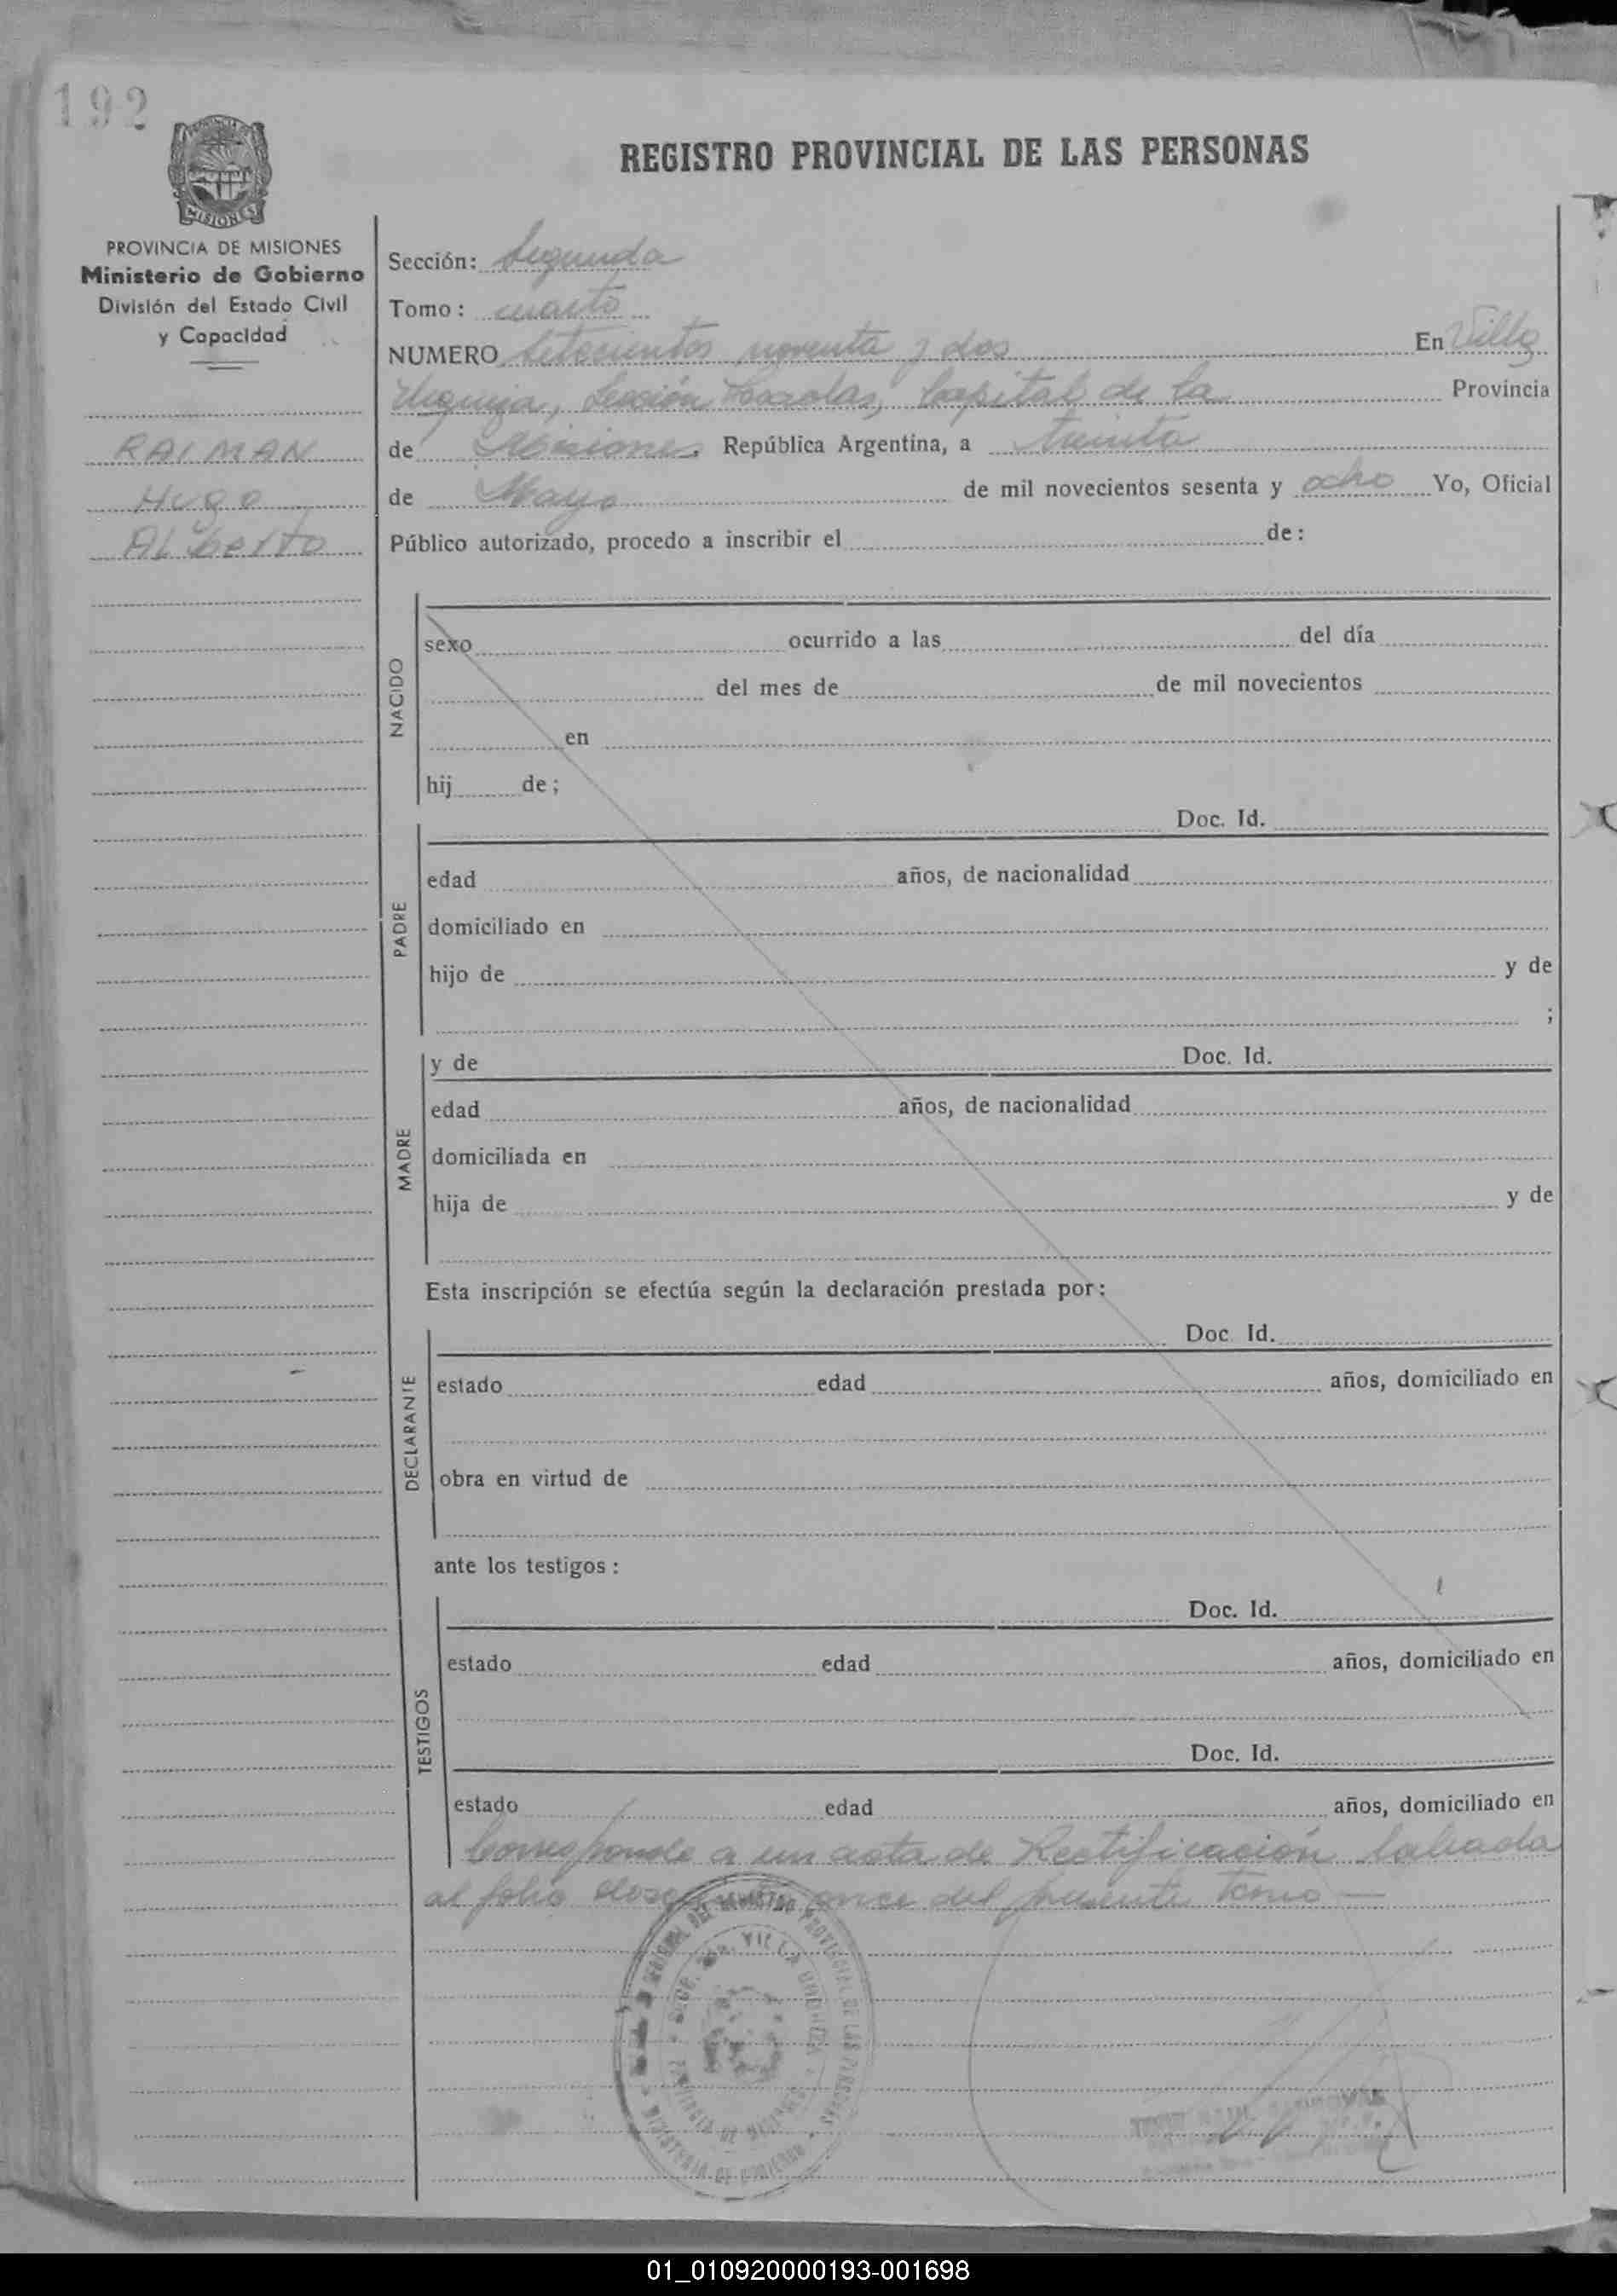 192
REGISTRO PROVINCIAL DE LAS PERSONAS
MISIONES
PROVINCIA DE MISIONES
Ministerio de Gobierno
División del Estado Civil
y Capacidad
RAIMAN
HUgo
ALberto
Sección: Segunda
Tomo: cuarto
NUMERO Setecientos noventa y dos En Villa
Urquiza, Sección Posadas, Capital de la Provincia
de Misiones. República Argentina, a treinta
de Mayo de mil novecientos sesenta y ocho Yo, Oficial
Público autorizado, procedo a inscribir el de:
NACIDO
sexo ocurrido a las del día
del mes de de mil novecientos
en
hij de;
PADRE
Doc. Id.
edad años, de nacionalidad
domiciliado en
hijo de y de
;
MADRE
y de Doc. Id.
edad años, de nacionalidad
domiciliada en
hija de y de
Esta inscripción se efectúa según la declaración prestada por:
DECLARANTE
Doc. Id.
estado edad años, domiciliado en
obra en virtud de
ante los testigos:
TESTIGOS
Doc. Id.
estado edad años, domiciliado en
Doc. Id.
estado edad años, domiciliado en
Corresponde a un acta de Rectificación labrada
al folio once del presente tomo —
MINISTERIO DE GOBIERNO
01_010920000193-001698